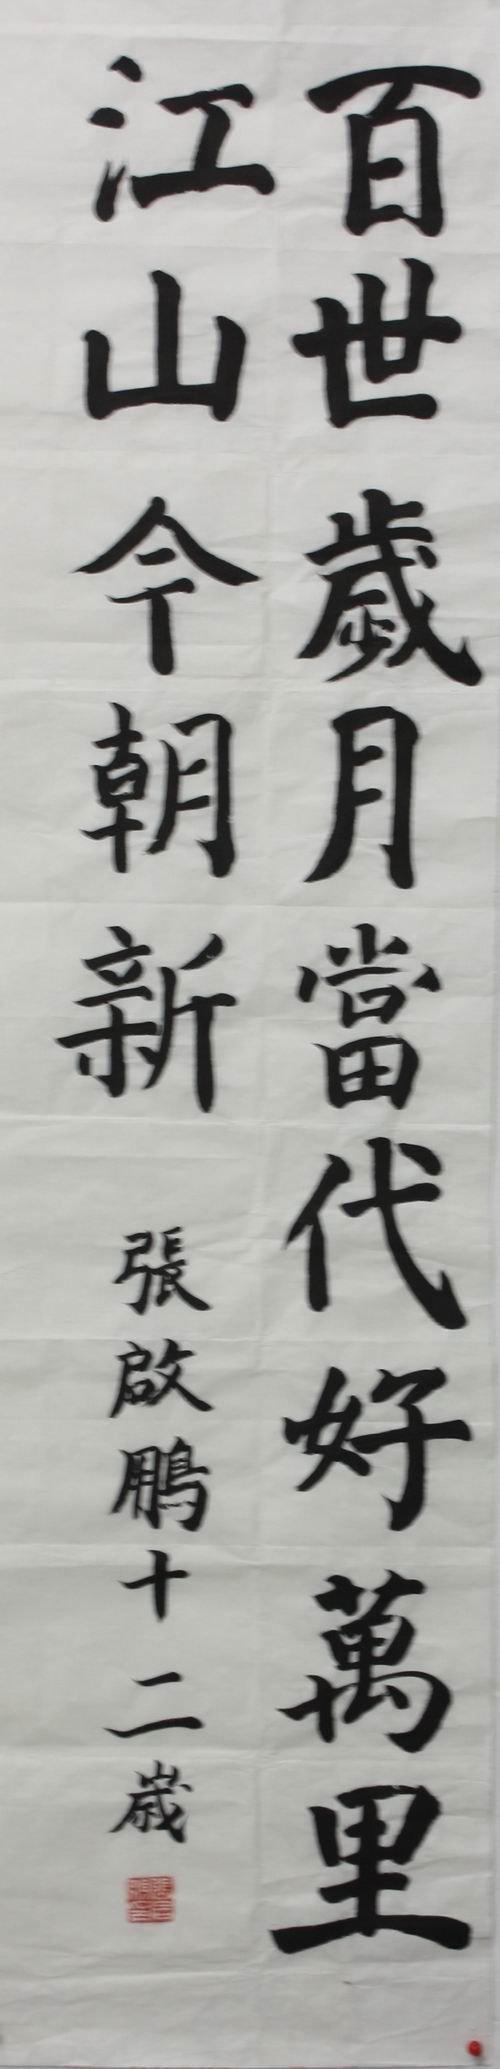 百世歲月當代好萬里
江山今朝新
張啟鵬十二歲